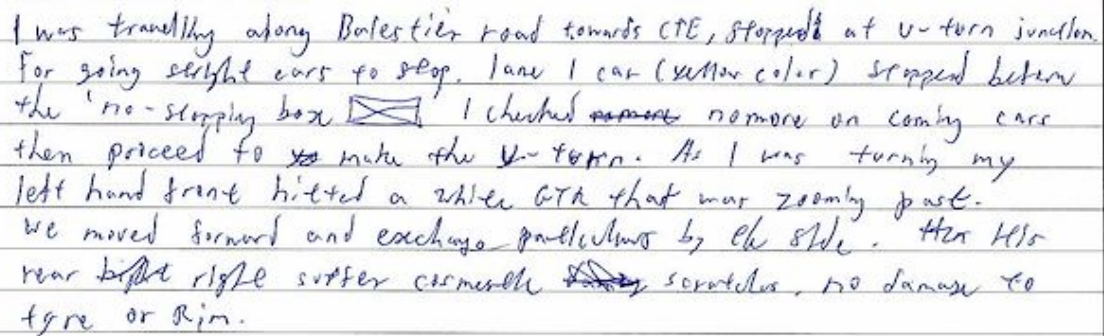 I was travelling along Balestier road towards CTE, stopped at U-turn junction.
For going straight cars to stop. lane 1 car (yellow color) stopped before
the "no-stopping box" I checked no more on coming cars
then proceed to make the U-turn. As I was turning my
left hand front hitted a white GTR that was zooming past.
We moved forward and exchange particulars by the side. His
rear right suffer cosmetic scratches, no damage to
tyre or Rim.